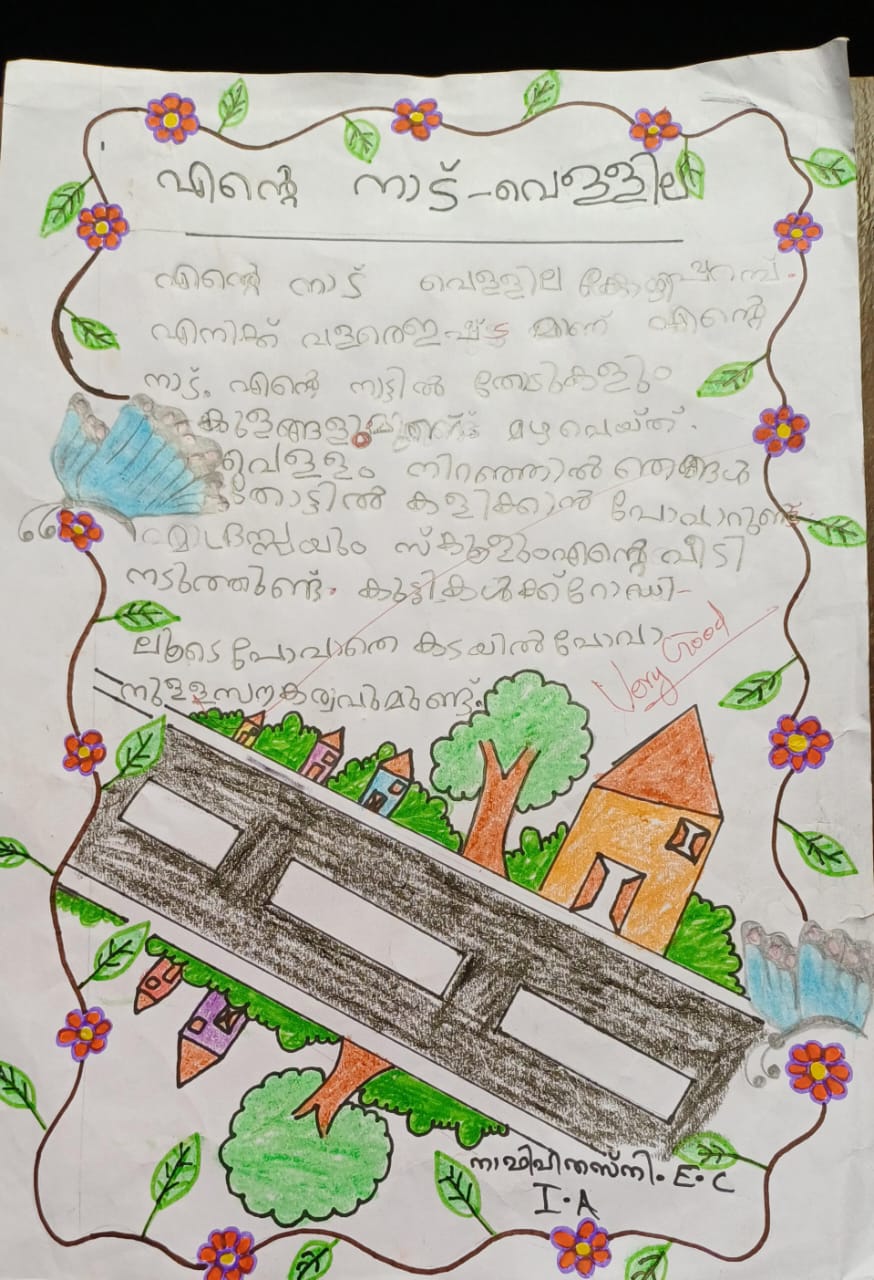 എന്റെ നാട് - വെള്ളില
എന്റെ നാട് വെള്ളില കോഴിപറമ്പ്.
എനിക്ക് വളരെഇഷ്ട്ട മാണ് എന്റെ
നാട്. എന്റെ നാട്ടിൽ തോടുകളും
കുളങ്ങളുമുണ്ട് മഴ പെയ്ത്.
വെള്ളം നിറഞ്ഞാൽ ഞങ്ങൾ
തോട്ടിൽ കളിക്കാൻ പോവാറുണ്ട്
മദ്രസ്സയും സ്കൂളും എന്റെ വീടി
നടുത്തുണ്ട്. കുട്ടികൾക്ക് റോഡി-
ലൂടെ പോവാതെ കടയിൽ പോവാ
നുള്ള സൗകര്യവുമുണ്ട്.
Very Good
E.C
I.A